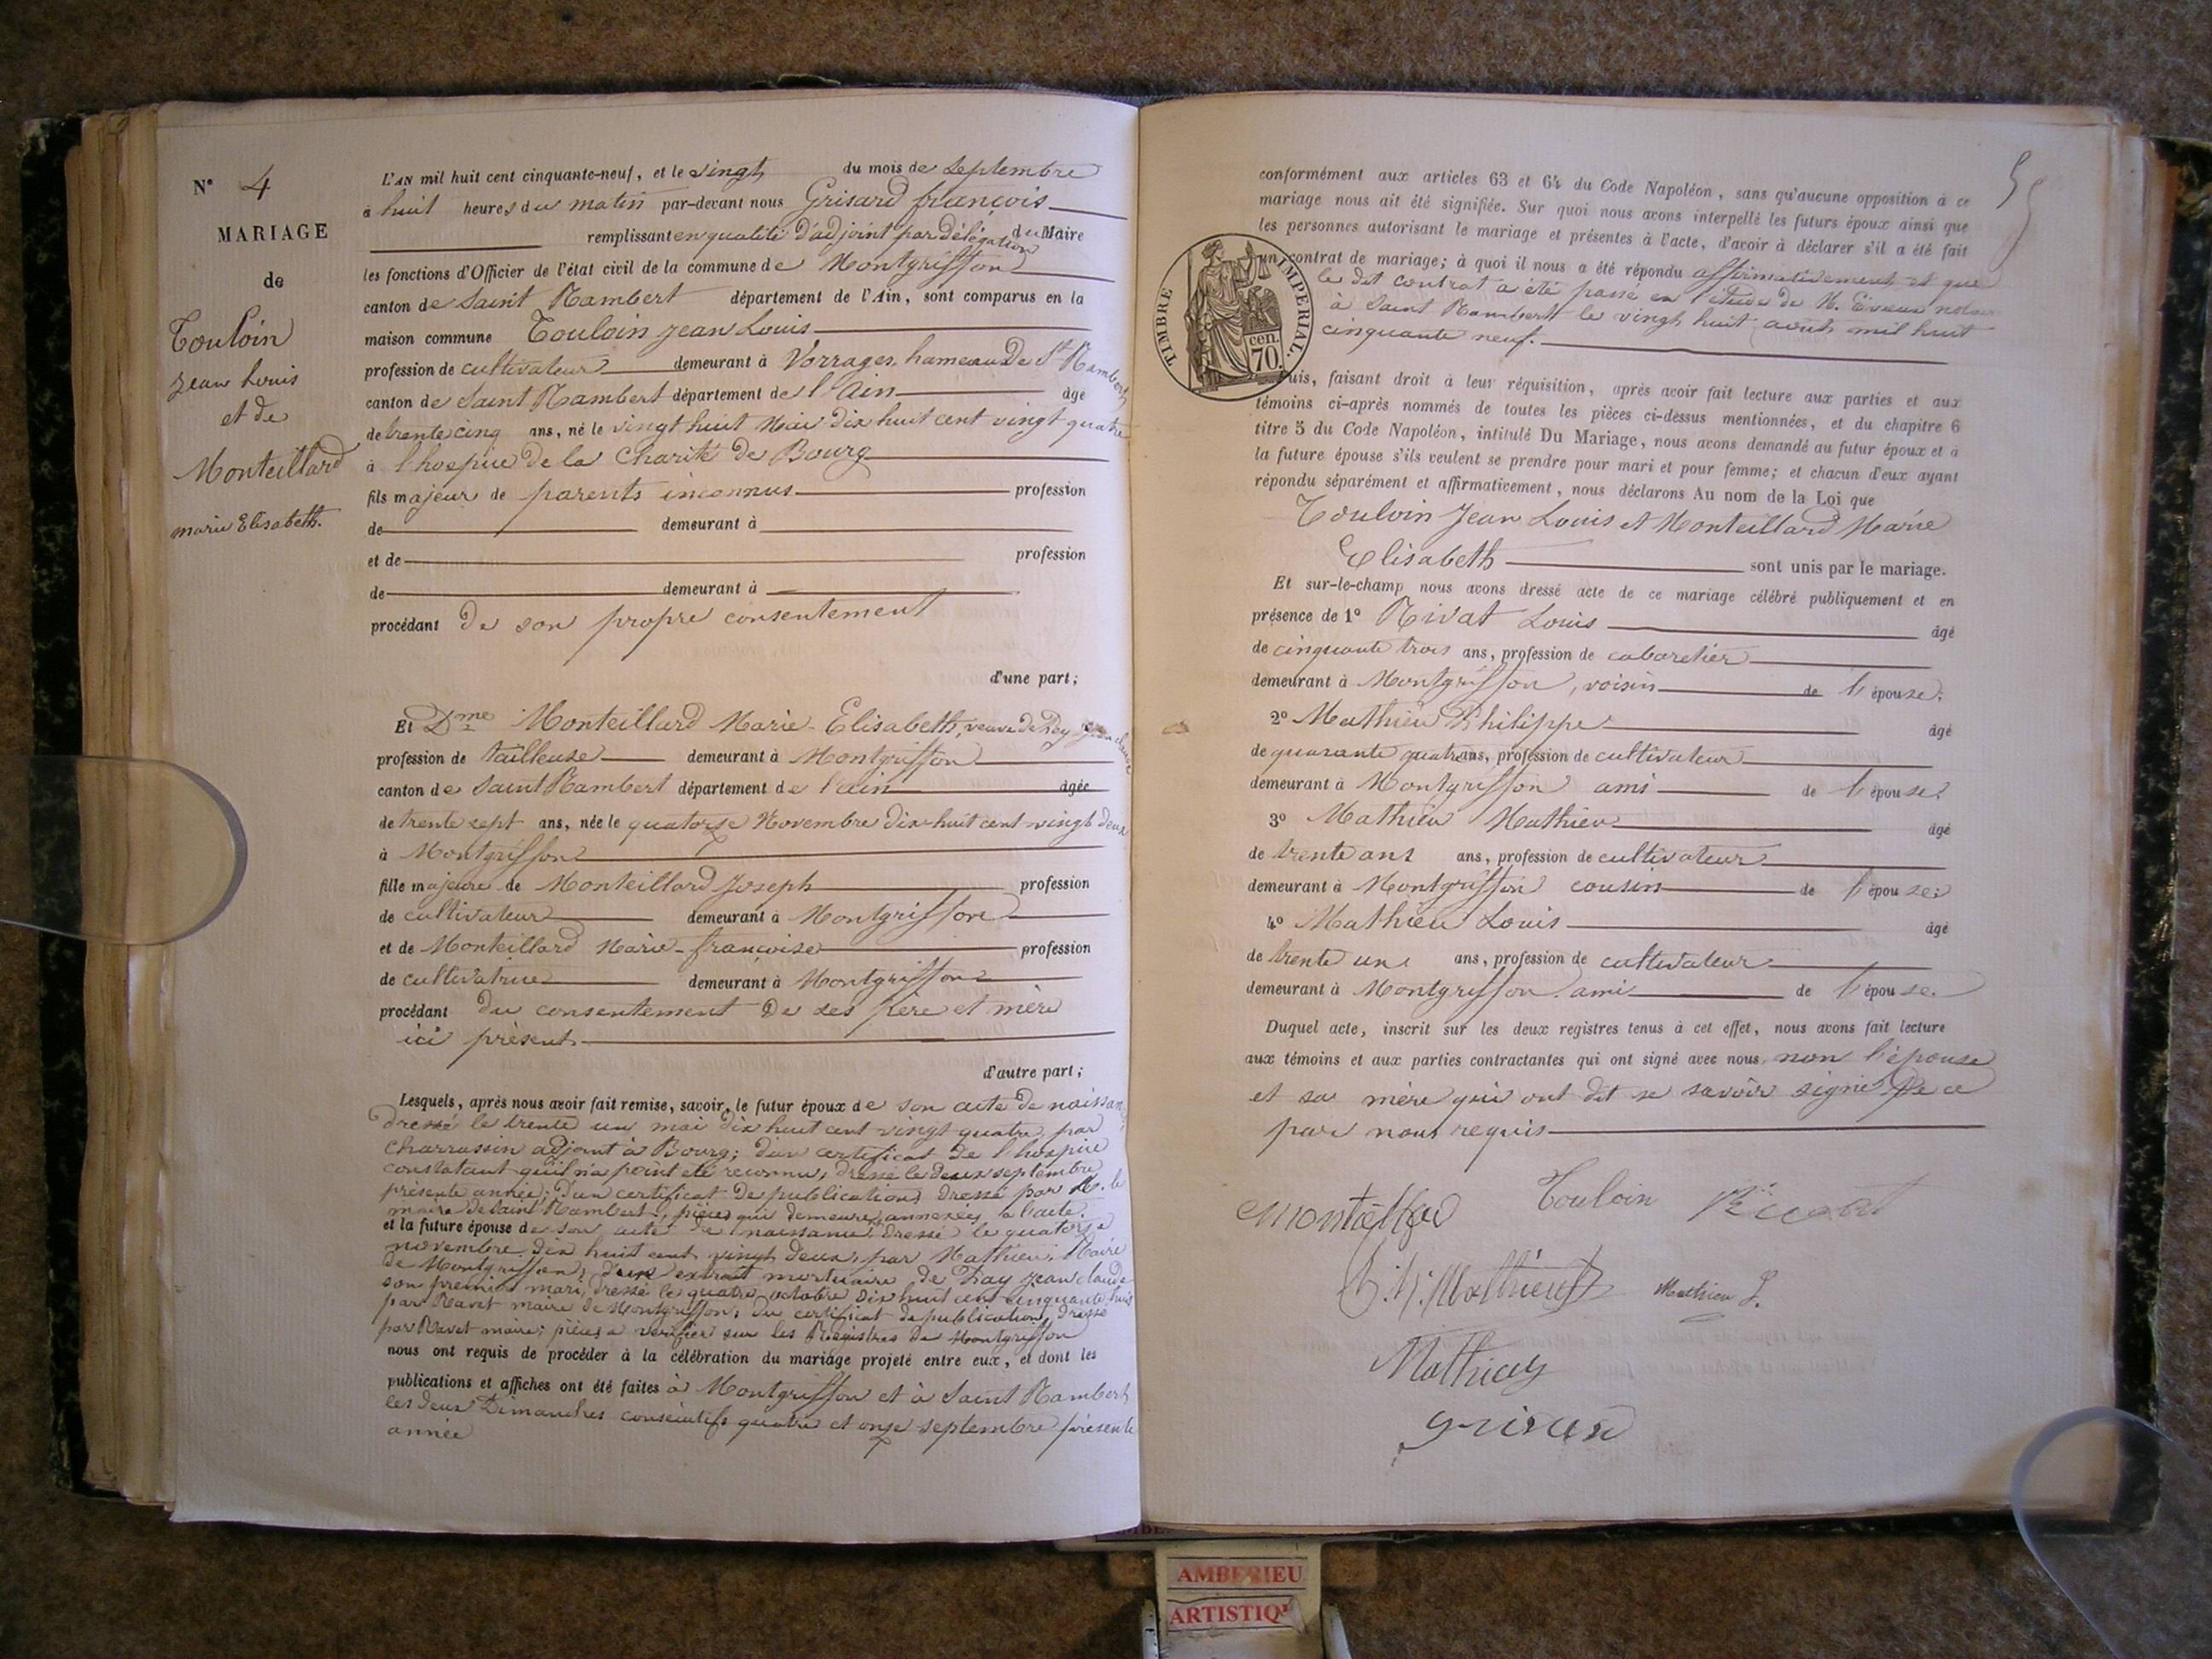 N° 4
MARIAGE
de
Touloin
Jean Louis
et de
Monteillard
marie Elisabeth.
L'AN mil huit cent cinquante-neuf, et le vingt du mois de septembre
à huit heures du matin par-devant nous Grisard françois
remplissant en qualité d'adjoint par délégation du Maire
les fonctions d'Officier de l'état civil de la commune de Montgriffon
canton de Saint Rambert département de l'Ain, sont comparus en la
maison commune Touloin Jean Louis
profession de cultivateur demeurant à Vorrages, hameau de St Rambert
canton de Saint Rambert département de l'Ain âgé
de trente cinq ans, né le vingt huit Mai dix huit cent vingt quatre
à l'hospice de la Charité de Bourg
fils majeur de parents inconnus profession
de demeurant à
et de profession
de demeurant à
procédant de son propre consentement
d'une part;
Et Dme Monteillard Marie-Elisabeth, veuve de Ray Jean claude
profession de tailleuse demeurant à Montgriffon
canton de Saint Rambert département de l'ain âgée
de trente sept ans, née le quatorze Novembre dix-huit cent vingt deux
à Montgriffon
fille majeure de Monteillard Joseph profession
de cultivateur demeurant à Montgriffon
et de Monteillard Marie-françoise profession
de cultivatrice demeurant à Montgriffon
procédant du consentement de ses père et mère
ici présents
d'autre part;
Lesquels, après nous avoir fait remise, savoir, le futur époux de son acte de naissance
dressé le trente un mai dix huit cent vingt quatre par
Charrassin adjoint à Bourg; d'un certificat de l'hospice
constatant qu'il n'a point été reconnu, dressé le deux septembre
présente année; d'un certificat de publications dressé par M. le
maire de Saint Rambert; pièces qui demeure annexées à l'acte.
et la future épouse de son acte de naissance, dressé le quatorze
novembre dix huit cent vingt deux, par Mathieu, Maire
de Montgriffon; d'un extrait mortuaire de Ray Jean claude
son premier mari, dressé le quatre octobre dix huit cent cinquante huit
par Ravet maire de Montgriffon; du certificat de publication dressé
par Ravet maire; pièces à vérifier sur les Registres de Montgriffon
nous ont requis de procéder à la célébration du mariage projeté entre eux, et dont les
publications et affiches ont été faites à Montgriffon et à Saint Rambert
les deux Dimanches consécutifs quatre et onze septembre présente
année
conformément aux articles 63 et 64 du Code Napoléon, sans qu'aucune opposition à ce
mariage nous ait été signifiée. Sur quoi nous avons interpellé les futurs époux ainsi que
les personnes autorisant le mariage et présentes à l'acte, d'avoir à déclarer s'il a été fait
un contrat de mariage; à quoi il nous a été répondu affirmativement et que
le dit contrat a été passé en l'étude de M. notaire
à Saint Rambert le vingt huit août mil huit
cinquante neuf.
TIMBRE IMPERIAL.
cen.
70.
Puis, faisant droit à leur réquisition, après avoir fait lecture aux parties et aux
témoins ci-après nommés de toutes les pièces ci-dessus mentionnées, et du chapitre 6
titre 5 du Code Napoléon, intitulé Du Mariage, nous avons demandé au futur époux et à
la future épouse s'ils veulent se prendre pour mari et pour femme; et chacun d'eux ayant
répondu séparément et affirmativement, nous déclarons Au nom de la Loi que
Touloin Jean Louis et Monteillard Marie
Elisabeth sont unis par le mariage.
Et sur-le-champ nous avons dressé acte de ce mariage célébré publiquement et en
présence de 1° Rivat Louis âgé
de cinquante trois ans, profession de cabaretier
demeurant à Montgriffon, voisin de l'épouse;
2° Mathieu Philippe âgé
de quarante quatre ans, profession de cultivateur
demeurant à Montgriffon ami de l'épouse;
3° Mathieu Mathieu âgé
de trente ans ans, profession de cultivateur
demeurant à Montgriffon cousin de l'épouse;
4° Mathieu Louis âgé
de trente un ans, profession de cultivateur
demeurant à Montgriffon ami de l'épouse.
Duquel acte, inscrit sur les deux registres tenus à cet effet, nous avons fait lecture
aux témoins et aux parties contractantes qui ont signé avec nous, non l'épouse
et sa mère qui ont dit ne savoir signer de ce
par nous requis
Touloin
Mathieu
Mathieu L.
Mathieu
AMBERIEU
ARTISTIQ